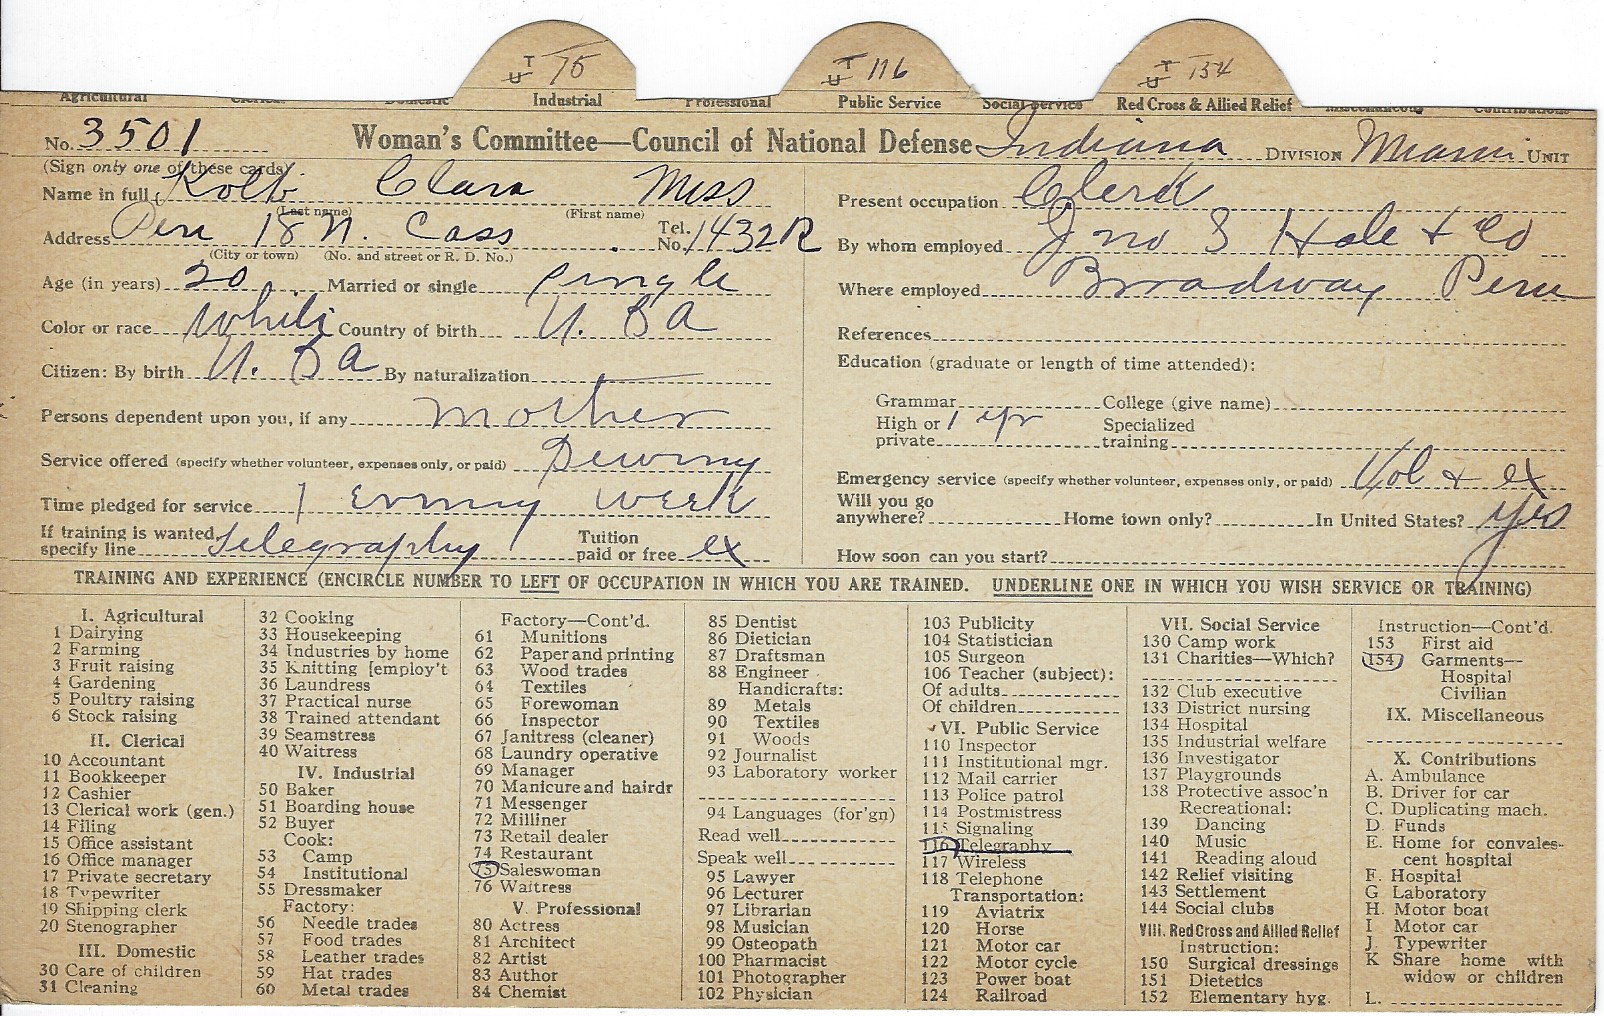 T U 75 T U 116 T U 154
Agricultural Clerical Domestic Industrial Professional Public Service Social Service Red Cross & Allied Relief Miscellaneous Contributions
No. 3501 Woman's Committee—Council of National Defense Indiana DIVISION Miami UNIT
(Sign only one of these cards)
Name in full Kolb Clara Miss
(Last name) (First name)
Address Peru 18 N. Cass Tel. No. 1432R
(City or town) (No. and street or R. D. No.)
Age (in years) 20 Married or single single
Color or race White Country of birth U. S A
Citizen: By birth U. S A By naturalization
Persons dependent upon you, if any mother
Service offered (specify whether volunteer, expenses only, or paid) Sewing
Time pledged for service 1 Evening week
If training is wanted
specify line Telegraphy Tuition
paid or free ex
Present occupation Clerk
By whom employed Jno S Hale + Co
Where employed Broadway Peru
References
Education (graduate or length of time attended):
Grammar College (give name)
High or 1 yr Specialized
private training
Emergency service (specify whether volunteer, expenses only, or paid) Vol + ex
Will you go
anywhere? Home town only? In United States? yes
How soon can you start?
TRAINING AND EXPERIENCE (ENCIRCLE NUMBER TO LEFT OF OCCUPATION IN WHICH YOU ARE TRAINED. UNDERLINE ONE IN WHICH YOU WISH SERVICE OR TRAINING)
I. Agricultural
1 Dairying
2 Farming
3 Fruit raising
4 Gardening
5 Poultry raising
6 Stock raising
II. Clerical
10 Accountant
11 Bookkeeper
12 Cashier
13 Clerical work (gen.)
14 Filing
15 Office assistant
16 Office manager
17 Private secretary
18 Typewriter
19 Shipping clerk
20 Stenographer
III. Domestic
30 Care of children
31 Cleaning
32 Cooking
33 Housekeeping
34 Industries by home
35 Knitting [employ't
36 Laundress
37 Practical nurse
38 Trained attendant
39 Seamstress
40 Waitress
IV. Industrial
50 Baker
51 Boarding house
52 Buyer
Cook:
53 Camp
54 Institutional
55 Dressmaker
Factory:
56 Needle trades
57 Food trades
58 Leather trades
59 Hat trades
60 Metal trades
Factory—Cont'd.
61 Munitions
62 Paper and printing
63 Wood trades
64 Textiles
65 Forewoman
66 Inspector
67 Janitress (cleaner)
68 Laundry operative
69 Manager
70 Manicure and hairdr
71 Messenger
72 Milliner
73 Retail dealer
74 Restaurant
75 Saleswoman
76 Waitress
V. Professional
80 Actress
81 Architect
82 Artist
83 Author
84 Chemist
85 Dentist
86 Dietician
87 Draftsman
88 Engineer
Handicrafts:
89 Metals
90 Textiles
91 Woods
92 Journalist
93 Laboratory worker
94 Languages (for'gn)
Read well
Speak well
95 Lawyer
96 Lecturer
97 Librarian
98 Musician
99 Osteopath
100 Pharmacist
101 Photographer
102 Physician
103 Publicity
104 Statistician
105 Surgeon
106 Teacher (subject):
Of adults
Of children
VI. Public Service
110 Inspector
111 Institutional mgr.
112 Mail carrier
113 Police patrol
114 Postmistress
115 Signaling
116 Telegraphy
117 Wireless
118 Telephone
Transportation:
119 Aviatrix
120 Horse
121 Motor car
122 Motor cycle
123 Power boat
124 Railroad
VII. Social Service
130 Camp work
131 Charities—Which?
132 Club executive
133 District nursing
134 Hospital
135 Industrial welfare
136 Investigator
137 Playgrounds
138 Protective assoc'n
Recreational:
139 Dancing
140 Music
141 Reading aloud
142 Relief visiting
143 Settlement
144 Social clubs
VIII. Red Cross and Allied Relief
Instruction:
150 Surgical dressings
151 Dietetics
152 Elementary hyg.
Instruction—Cont'd.
153 First aid
154 Garments—
Hospital
Civilian
IX. Miscellaneous
X. Contributions
A. Ambulance
B. Driver for car
C. Duplicating mach.
D. Funds
E. Home for convales-
cent hospital
F. Hospital
G Laboratory
H. Motor boat
I Motor car
J. Typewriter
K Share home with
widow or children
L.